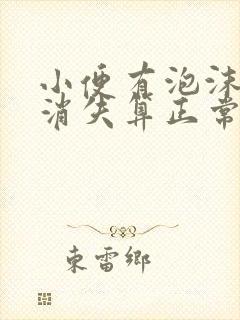 小便有泡沫
消失算正常
東雷鄉